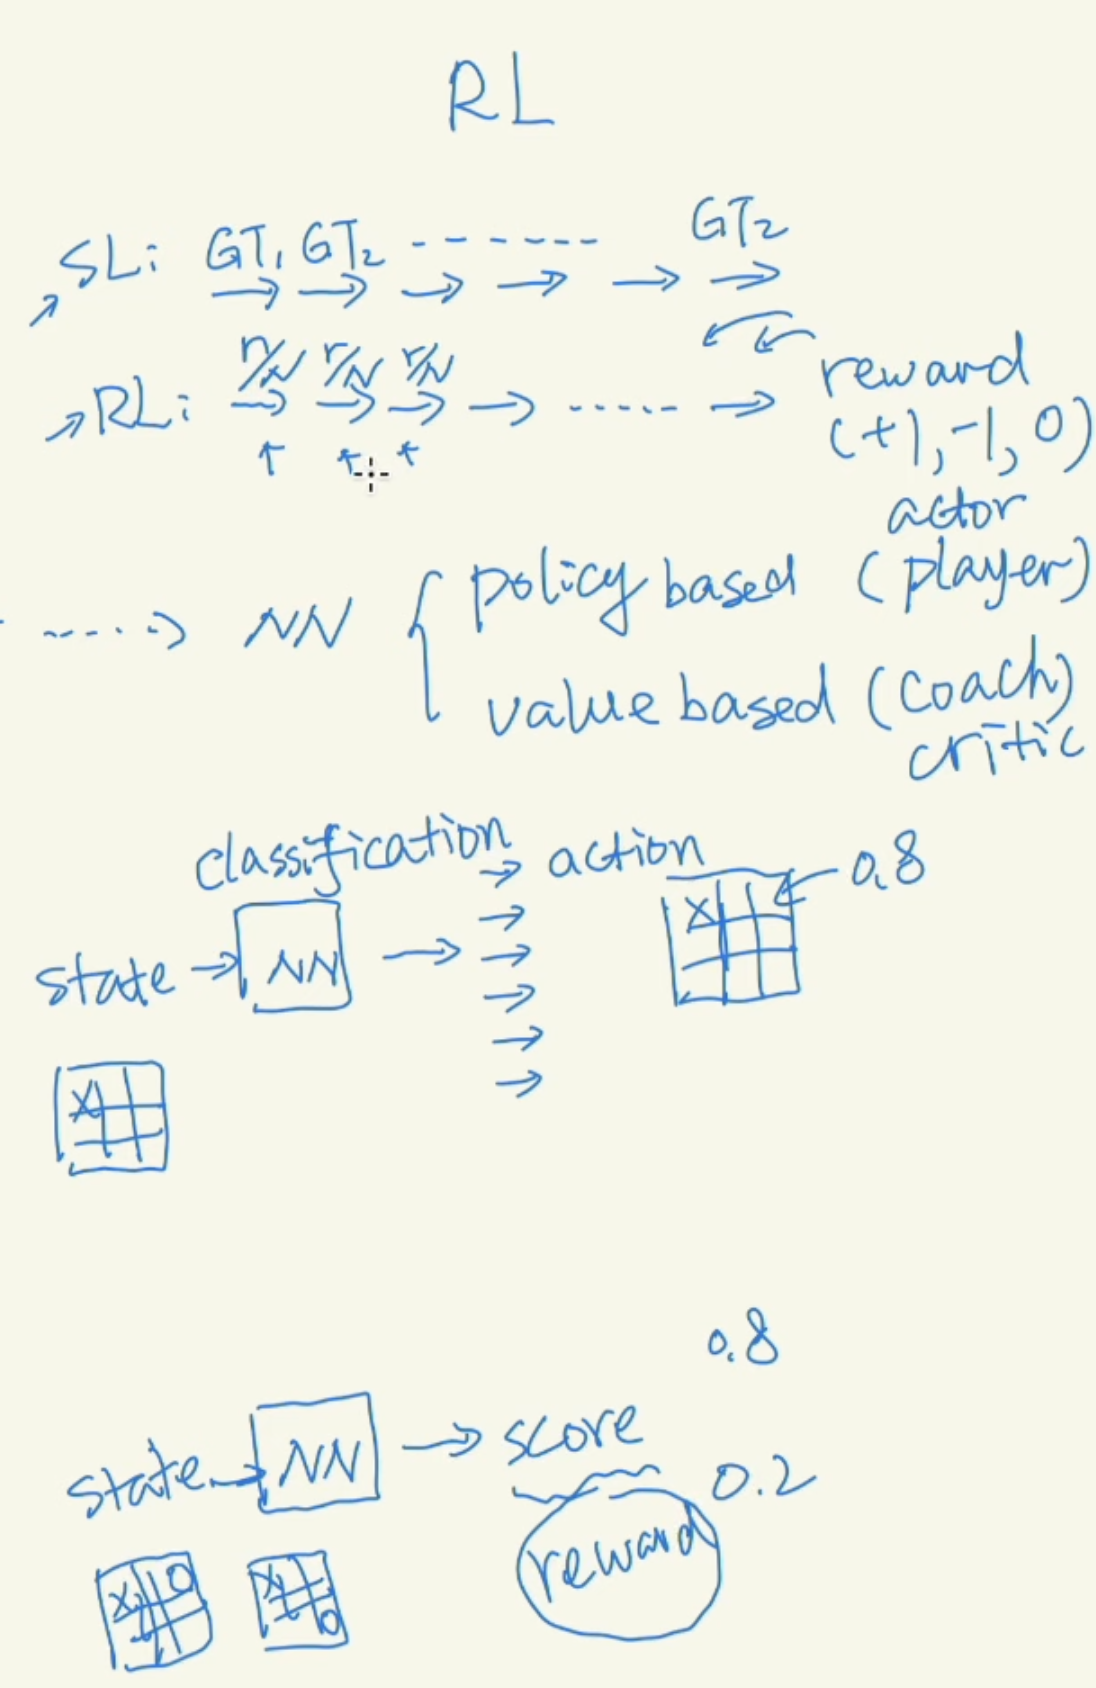 RL
SL: GT1 GT2 ------- GT2
r/N r/N r/N
RL: ..... reward
(+1, -1, 0)
actor
NN { policy based (player)
value based (coach)
critic
classification action 0.8
X
state → NN →
X
0.8
state → NN → score
0.2
reward
X O X O